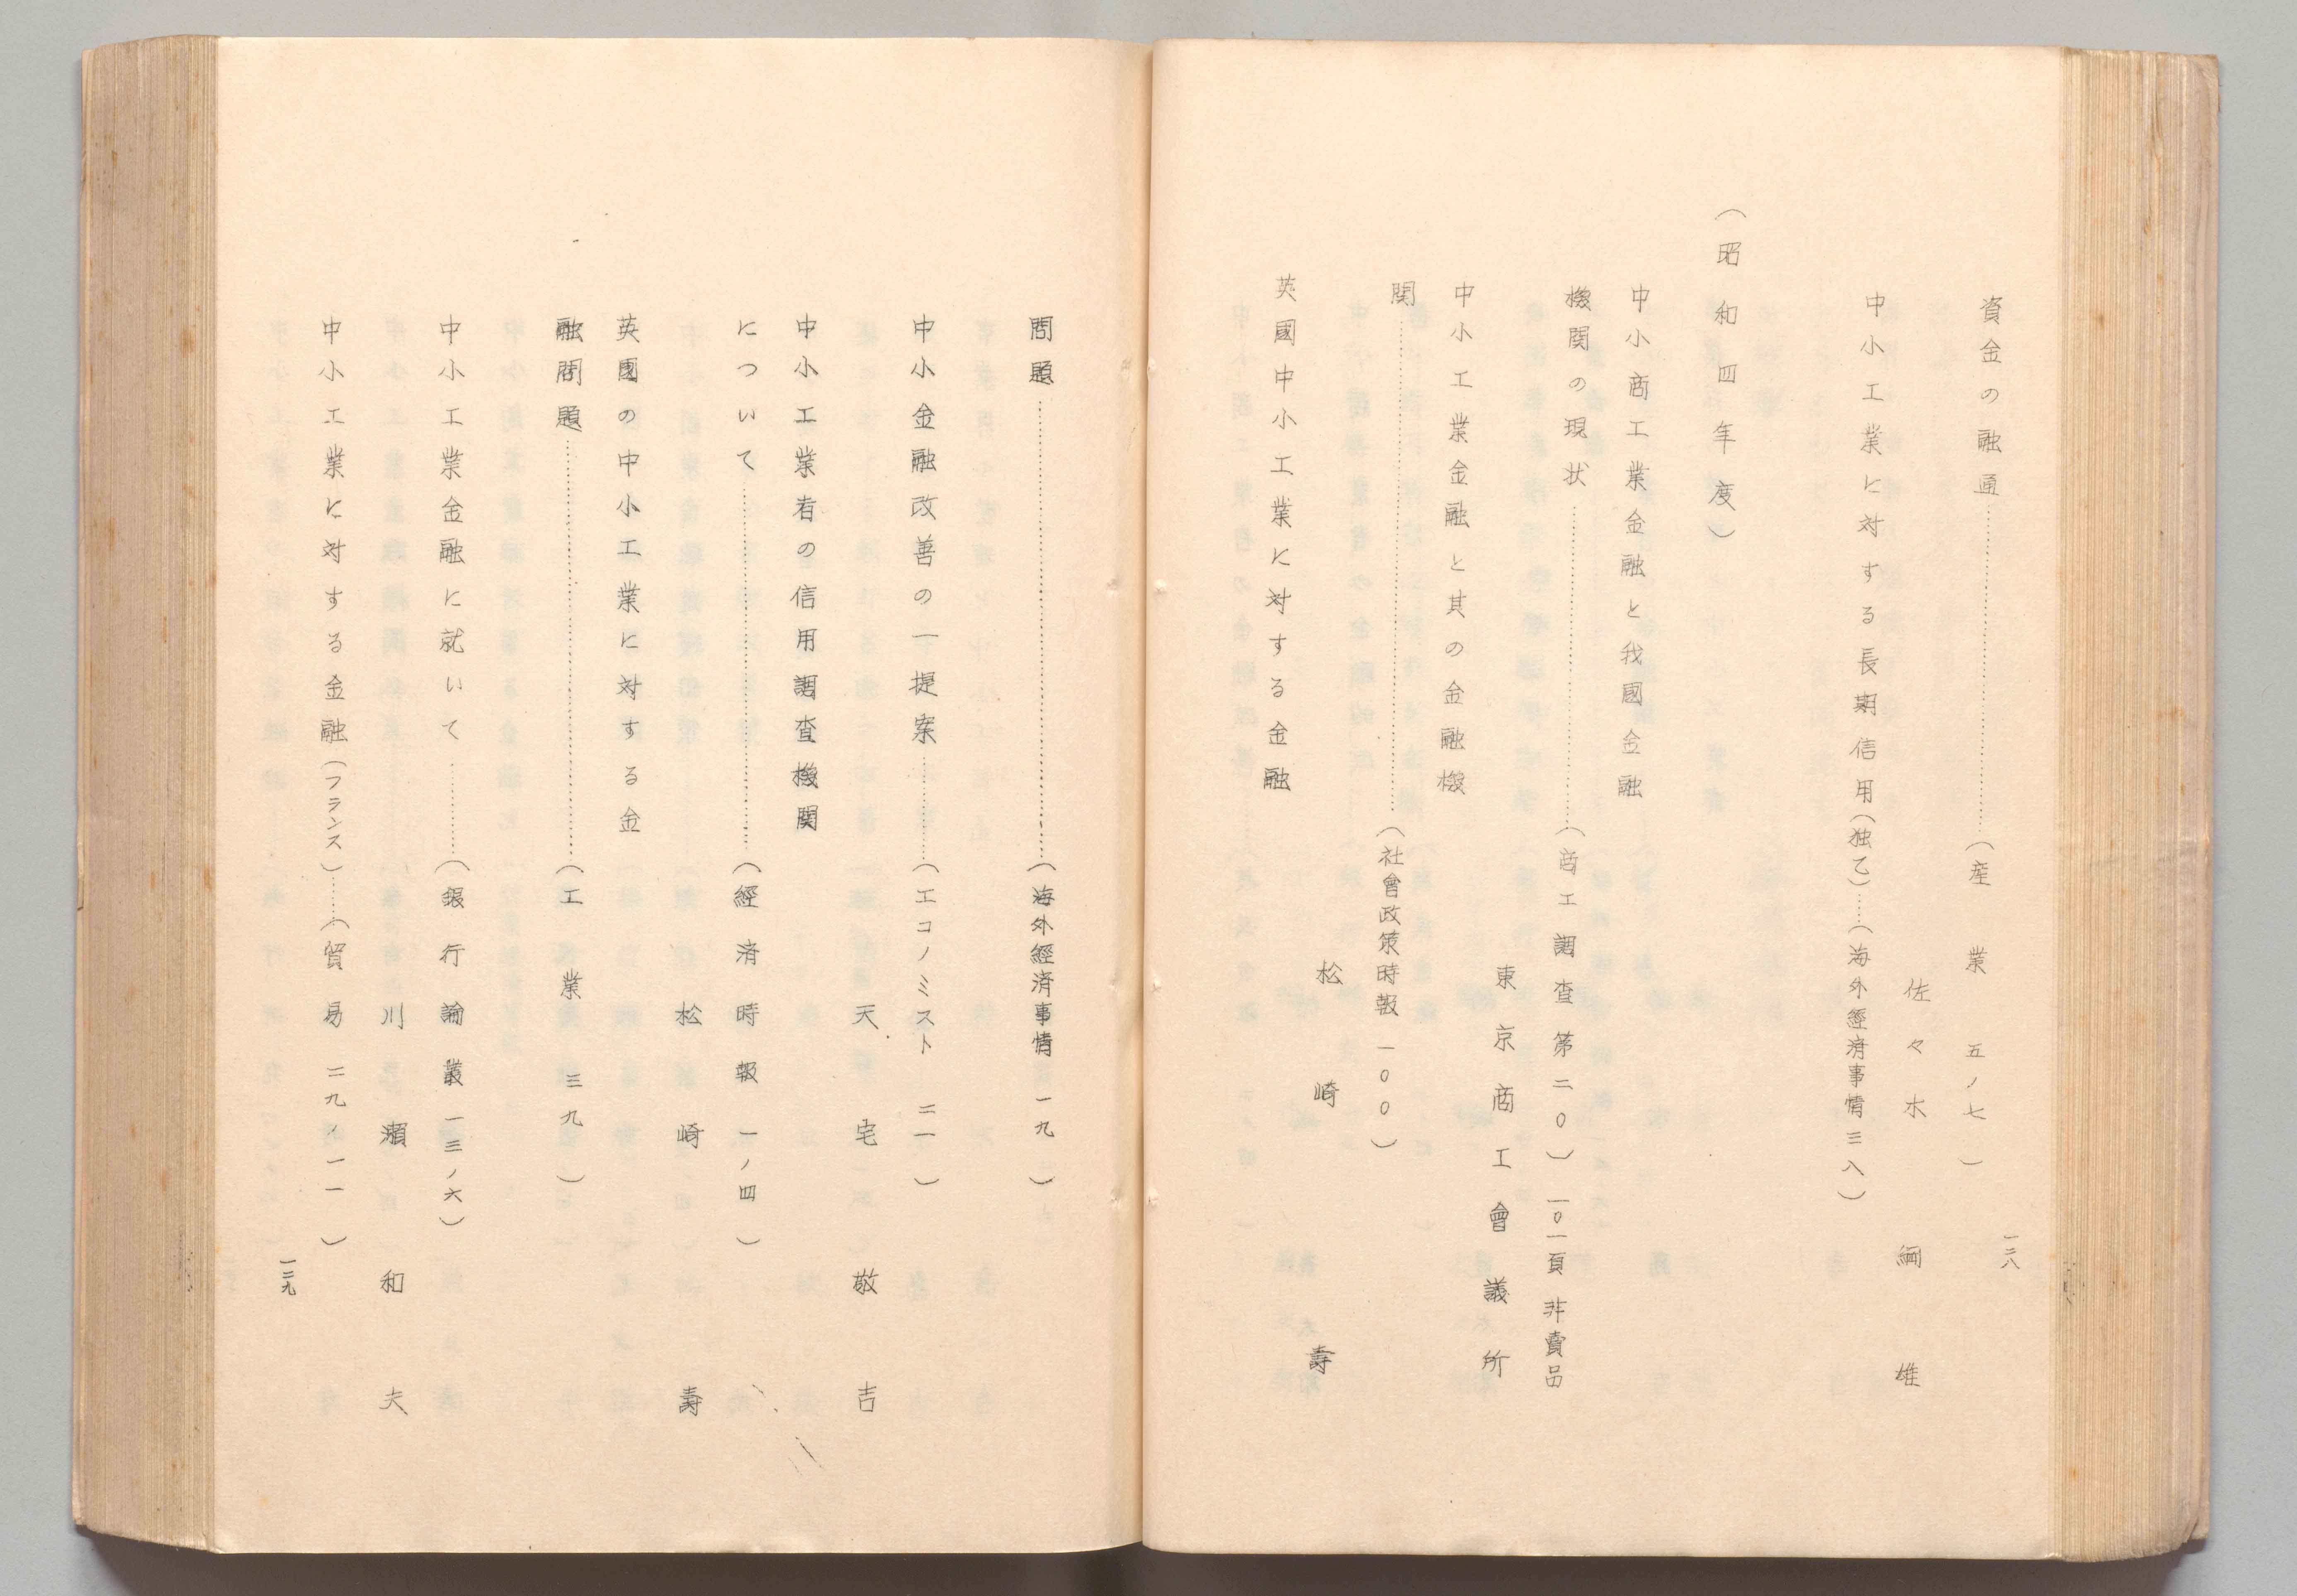 資金の融通……………………(産業 五ノ七)
佐々木綱雄
中小工業に対する長期信用(独乙)……(海外經済事情三八)
(昭和四年度)
中小商工業金融と我國金融
機関の現状……………………(商工調査第二〇)一〇一頁 非賣品
東京商工會議所
中小工業金融と其の金融機
関……………………(社會政策時報 一〇〇)
松崎壽
英國中小工業に対する金融
一三八
問題……………………(海外經済事情 一九)
中小金融改善の一提案…………(エコノミスト 二一)
天宅敬吉
中小工業者の信用調査機関
について……………………(經済時報 一ノ四)
松崎壽
英國の中小工業に対する金
融問題……………………(工業 三九)
中小工業金融に就いて…………(銀行論叢 一三ノ六)
川瀬和夫
中小工業に対する金融(フランス)……(貿易 二九ノ一一)
一三九